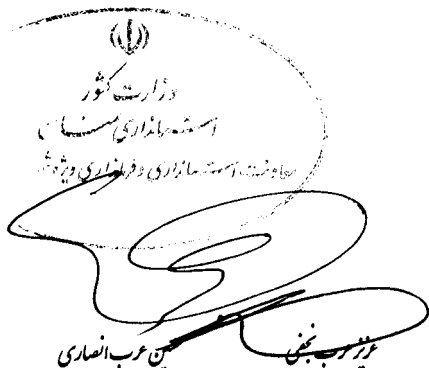 وزارت کشور
استانداری
معاونت استانداری و فرمانداری ویژه
عرب نجفی
عرب انصاری